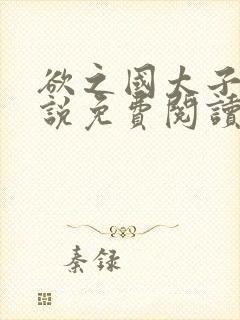 欲之國太子
說免費閱讀
秦録